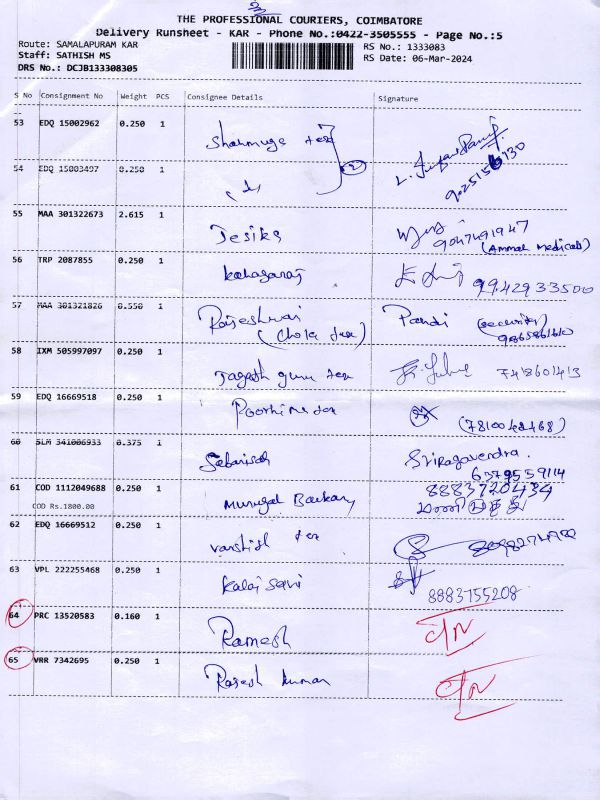 THE PROFESSIONAL COURIERS, COIMBATORE
Delivery Runsheet - KAR - Phone No.:0422-3505555 - Page No.:5
Route: SAMALAPURAM KAR
RS No.: 1333083
Staff: SATHISH MS
RS Date: 06-Mar-2024
DRS No.: DCJB133308305
S No Consignment No Weight PCS Consignee Details Signature
53 EDQ 15002962 0.250 1 Shanmuga tex
54 EDQ 15003497 0.250 1
55 MAA 301322673 2.615 1 Desika 9047491947
(Ammal medicals)
56 TRP 2087855 0.250 1 9942933500
57 MAA 301321826 0.550 1 Rajeshwari Pandi (security)
(Chola tex)
58 IXM 505997097 0.250 1 Jagath guru tex 7418601413
59 EDQ 16669518 0.250 1 Poorhi tex
60 SLM 341006933 0.375 1 Sabarish Sriragavendra.
6379559114
61 COD 1112049688 0.250 1 Murugal
COD Rs.1800.00
62 EDQ 16669512 0.250 1 Varshidh tex
63 VPL 222255468 0.250 1 Kalai Selvi
8883755208
64 PRC 13520583 0.160 1 Ramesh
65 VRR 7342695 0.250 1 Rajesh kumar